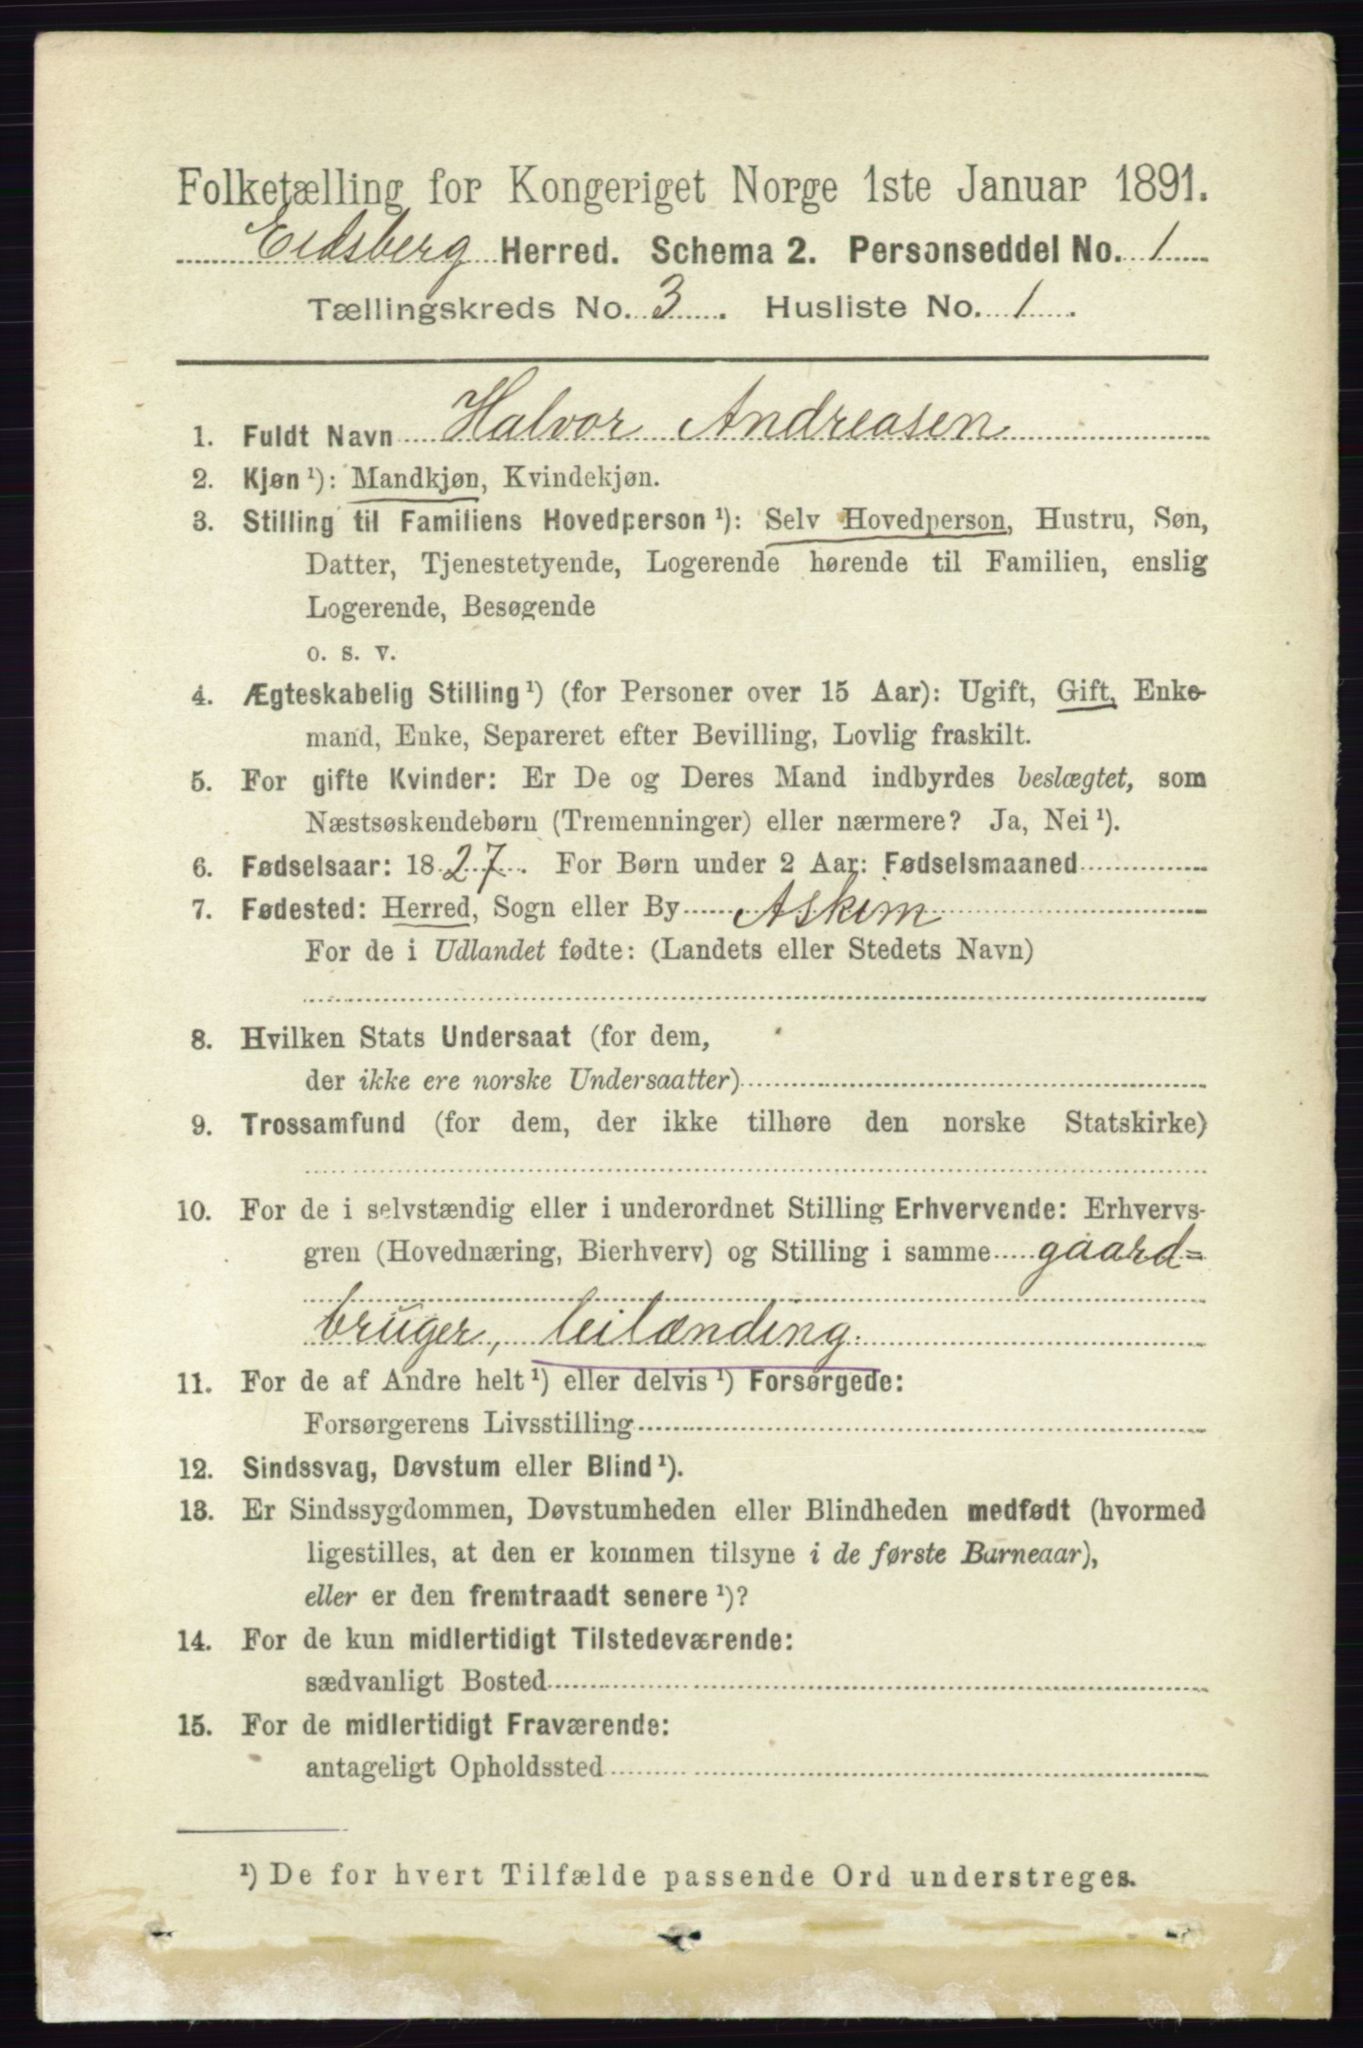 Folketælling for Kongeriget Norge 1ste Januar 1891.
Eidsberg Herred. Schema 2. Personseddel No. 1
Tællingskreds No. 3. Husliste No. 1.
1. Fuldt Navn Halvor Andreasen
2. Kjøn ¹): Mandkjøn, Kvindekjøn.
3. Stilling til Familiens Hovedperson ¹): Selv Hovedperson, Hustru, Søn,
Datter, Tjenestetyende, Logerende hørende til Familien, enslig
Logerende, Besøgende
o. s. v.
4. Ægteskabelig Stilling ¹) (for Personer over 15 Aar): Ugift, Gift, Enke-
mand, Enke, Separeret efter Bevilling, Lovlig fraskilt.
5. For gifte Kvinder: Er De og Deres Mand indbyrdes beslægtet, som
Næstsøskendebørn (Tremenninger) eller nærmere? Ja, Nei ¹).
6. Fødselsaar: 1827. For Børn under 2 Aar: Fødselsmaaned
7. Fødested: Herred, Sogn eller By Askim
For de i Udlandet fødte: (Landets eller Stedets Navn)
8. Hvilken Stats Undersaat (for dem,
der ikke ere norske Undersaatter)
9. Trossamfund (for dem, der ikke tilhøre den norske Statskirke)
10. For de i selvstændig eller i underordnet Stilling Erhvervende: Erhvervs-
gren (Hovednæring, Bierhverv) og Stilling i samme gaard=
bruger, leilænding.
11. For de af Andre helt ¹) eller delvis ¹) Forsørgede:
Forsørgerens Livsstilling
12. Sindssvag, Døvstum eller Blind ¹).
13. Er Sindssygdommen, Døvstumheden eller Blindheden medfødt (hvormed
ligestilles, at den er kommen tilsyne i de første Barneaar),
eller er den fremtraadt senere ¹)?
14. For de kun midlertidigt Tilstedeværende:
sædvanligt Bosted
15. For de midlertidigt Fraværende:
antageligt Opholdssted
¹) De for hvert Tilfælde passende Ord understreges.